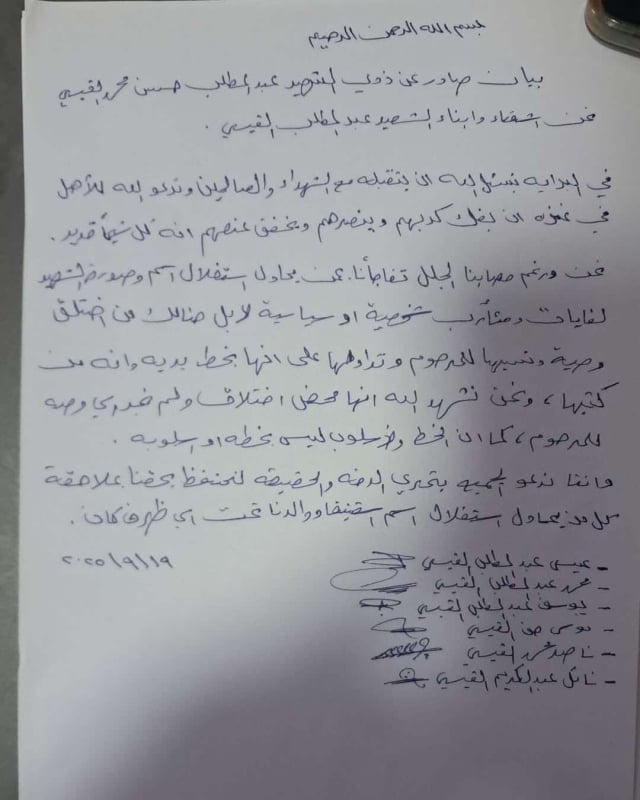 بسم الله الرحمن الرحيم
بيان صادر عن ذوي الشهيد عبد المطلب حسن محمد القيسي
نحن اشقاء وابناء الشهيد عبد المطلب القيسي .
في البدايه نسئل الله ان يتقبله مع الشهداء والصالحين وندعو الله للأهل
في غزه ان يفك كربهم وينصرهم ويخفف عنهم انه كل شيئاً قدير .
نحن ورغم مصابنا الجلل تفاجأنا بمن يحاول استغلال اسم وصورة الشهيد
لغايات ومئآرب شخصية او سياسية لا بل هنالك من اختلق
وصية ونسبها للمرحوم وتداولها على انها بخط يديه وانه من
كتبها ، ونحن نشهد الله انها محض اختلاف ولم نجد اي وصه
للمرحوم ، كما ان الخط والاسلوب ليس بخطه او اسلوبه .
واننا ندعو الجميع بتحري الدقه والحقيقه لنحتفظ بحقنا بملاحقة
كل من يحاول استغلال اسم شقيقنا ووالدنا تحت اي ظرف كان .
٢٠٢٥/٩/١٩
- عيسى عبد المطلب القيسي
- محمد عبد المطلب القيسي
- يوسف عبد المطلب القيسي
- موسى حسن القيسي
- ناصر محمد القيسي
- نائل عبد الكريم القيسي